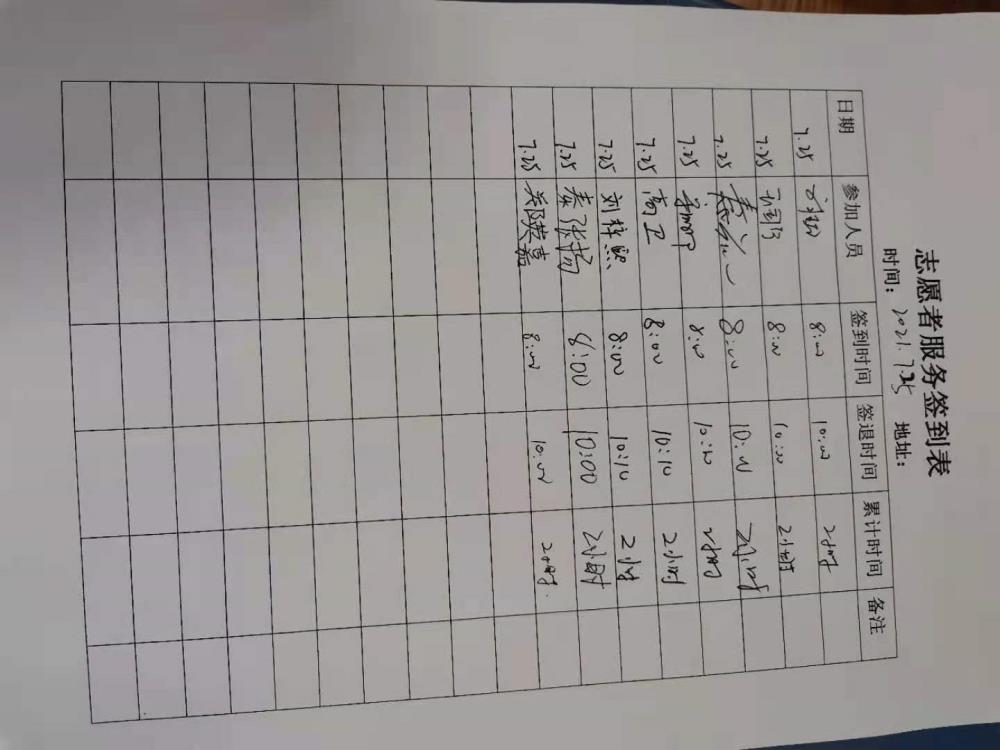 志愿者服务签到表
时间：2021.7.25 地址：
日期 参加人员 签到时间 签退时间 累计时间 备注
7.25 8:00 10:00 2小时
7.25 8:00 10:00 2小时
7.25 8:00 10:00 2小时
7.25 8:00 2小时
7.25 高卫 8:00 10:10 2小时
7.25 刘梓熙 8:00 10:10 2小时
7.25 秦张扬 8:00 10:00 2小时
7.25 8:00 10:00 2小时.